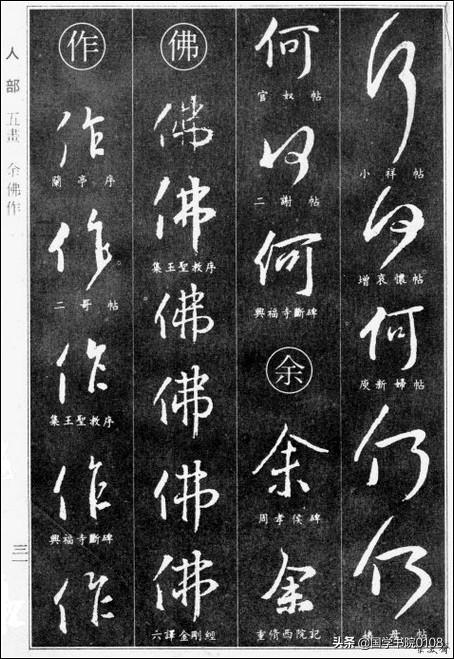 何
小祥帖
何
增哀懷帖
何
庾新婦帖
何
何
何
官奴帖
何
二謝帖
何
興福寺斷碑
余
余
周孝侯碑
余
重脩西院記
佛
佛
佛
集王聖教序
佛
佛
佛
佛
六譯金剛經
作
作
蘭亭序
作
二哥帖
作
集王聖教序
作
興福寺斷碑
作
人部 五畫 余佛作
头条 @国学书院0108